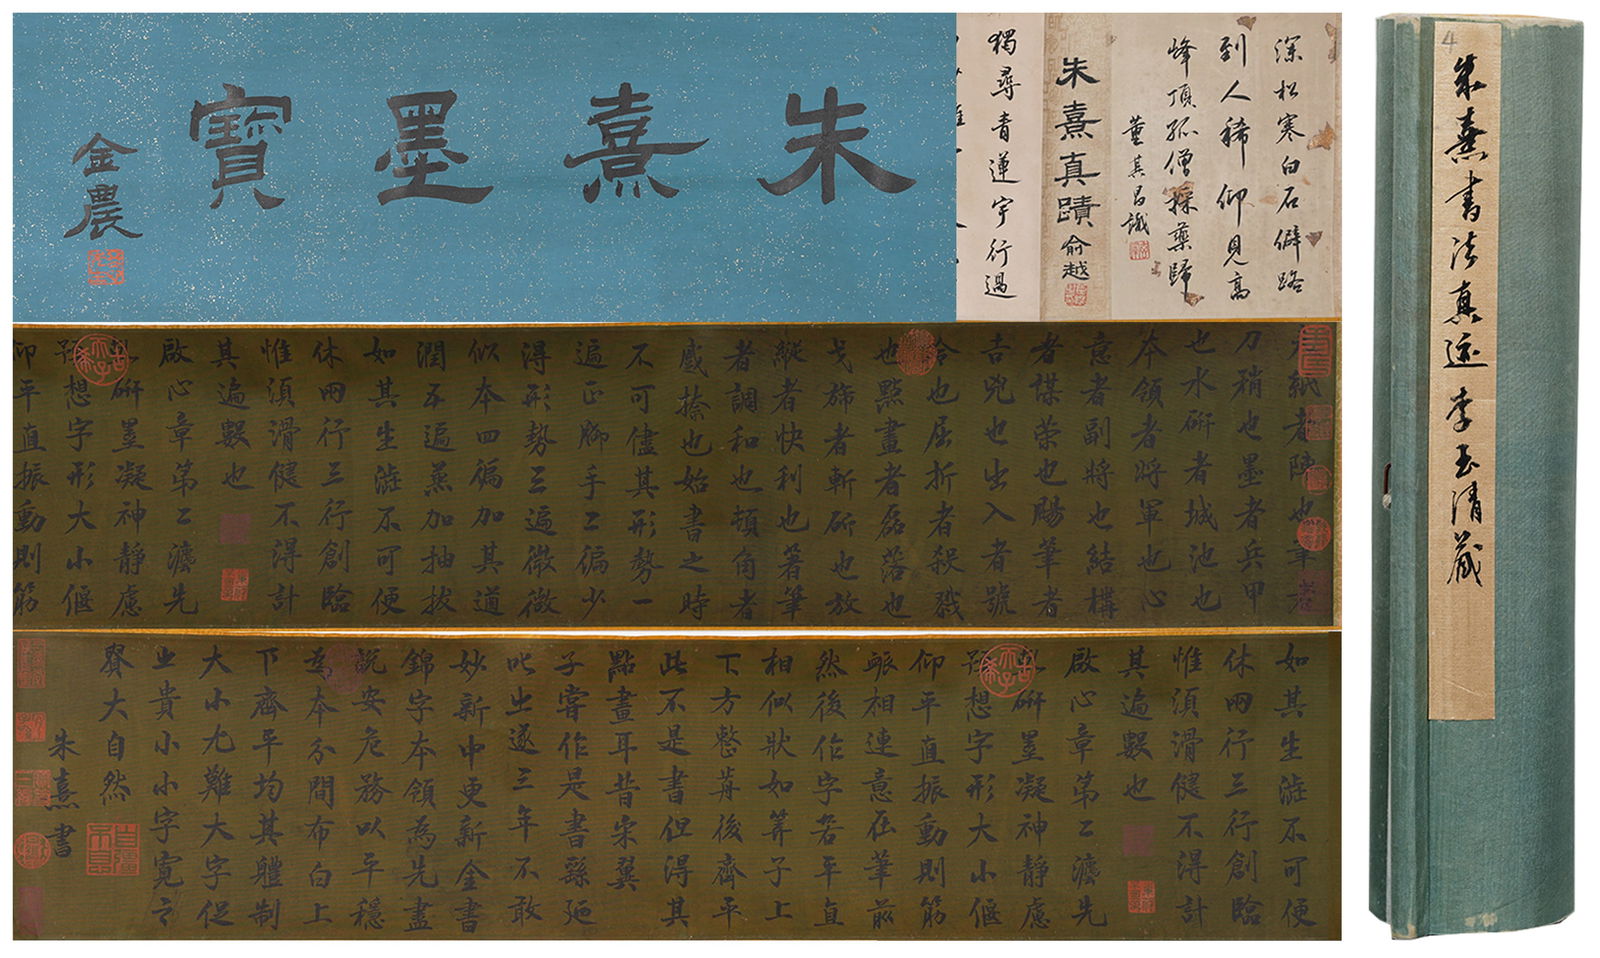 朱熹墨寶
金農
深松寒白石僻路
到人稀仰見高
峰頂孤僧採藥歸
董其昌識
朱熹真蹟 俞越
獨尋青蓮宇行過
紙者陣也筆者
刀矟也墨者兵甲
也水研者城池也
本領者將軍也心
意者副將也結構
者謀策也颺筆者
吉兇也出入者號
令也屈折者殺戮
也點畫者磊落也
戈旆者斬斫也放
縱者快利也著筆
者調和也頓角者
蹙捺也始書之時
不可儘其形勢一
遍正腳手二徧少
得形勢三遍微微
似本四徧加其遒
潤五遍兼加抽拔
如其生澁不可便
休兩行三行創臨
惟須滑健不得計
其遍數也
啟心章第二濟先
研墨凝神靜慮
預想字形大小偃
仰平直振動則筋
如其生澁不可便
休兩行三行創臨
惟須滑健不得計
其遍數也
啟心章第二濟先
研墨凝神靜慮
預想字形大小偃
仰平直振動則筋
脈相連意在筆前
然後作字若平直
相似狀如筭子上
下方整前後齊平
此不是書但得其
點畫耳昔宋翼
子嘗作是書繇廸
叱出遂三年不敢
妙新中更新金書
錦字本領為先盡
說安危務以平穩
為本分間布白上
下齊平均其軆制
大小尤難大字促
之貴小小字寬之
賢大自然
朱熹書
4
朱熹書法真迹 李玉清藏